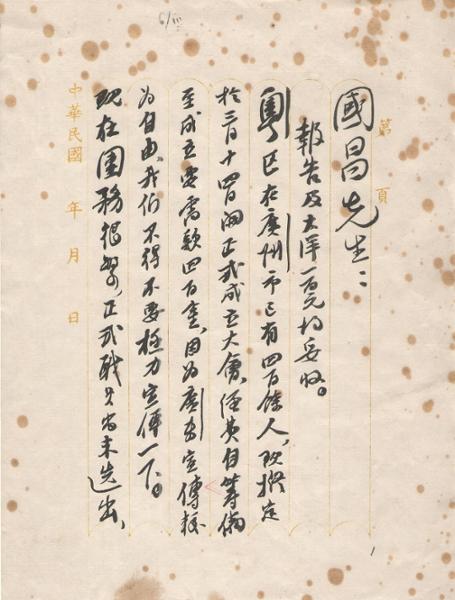 第 頁
國昌先生：
報告及大洋一百元均妥收。
粵區在廣州市已有四百餘人，現擬定
於三月十四日開正式成立大會，經費自籌備
至成立要需款四百 ，因為廣東宣傳較
為自由，我們不得不要極力宣傳一下。
現在團務很緊，正式職員尚未選出，
中華民國 年 月 日
1